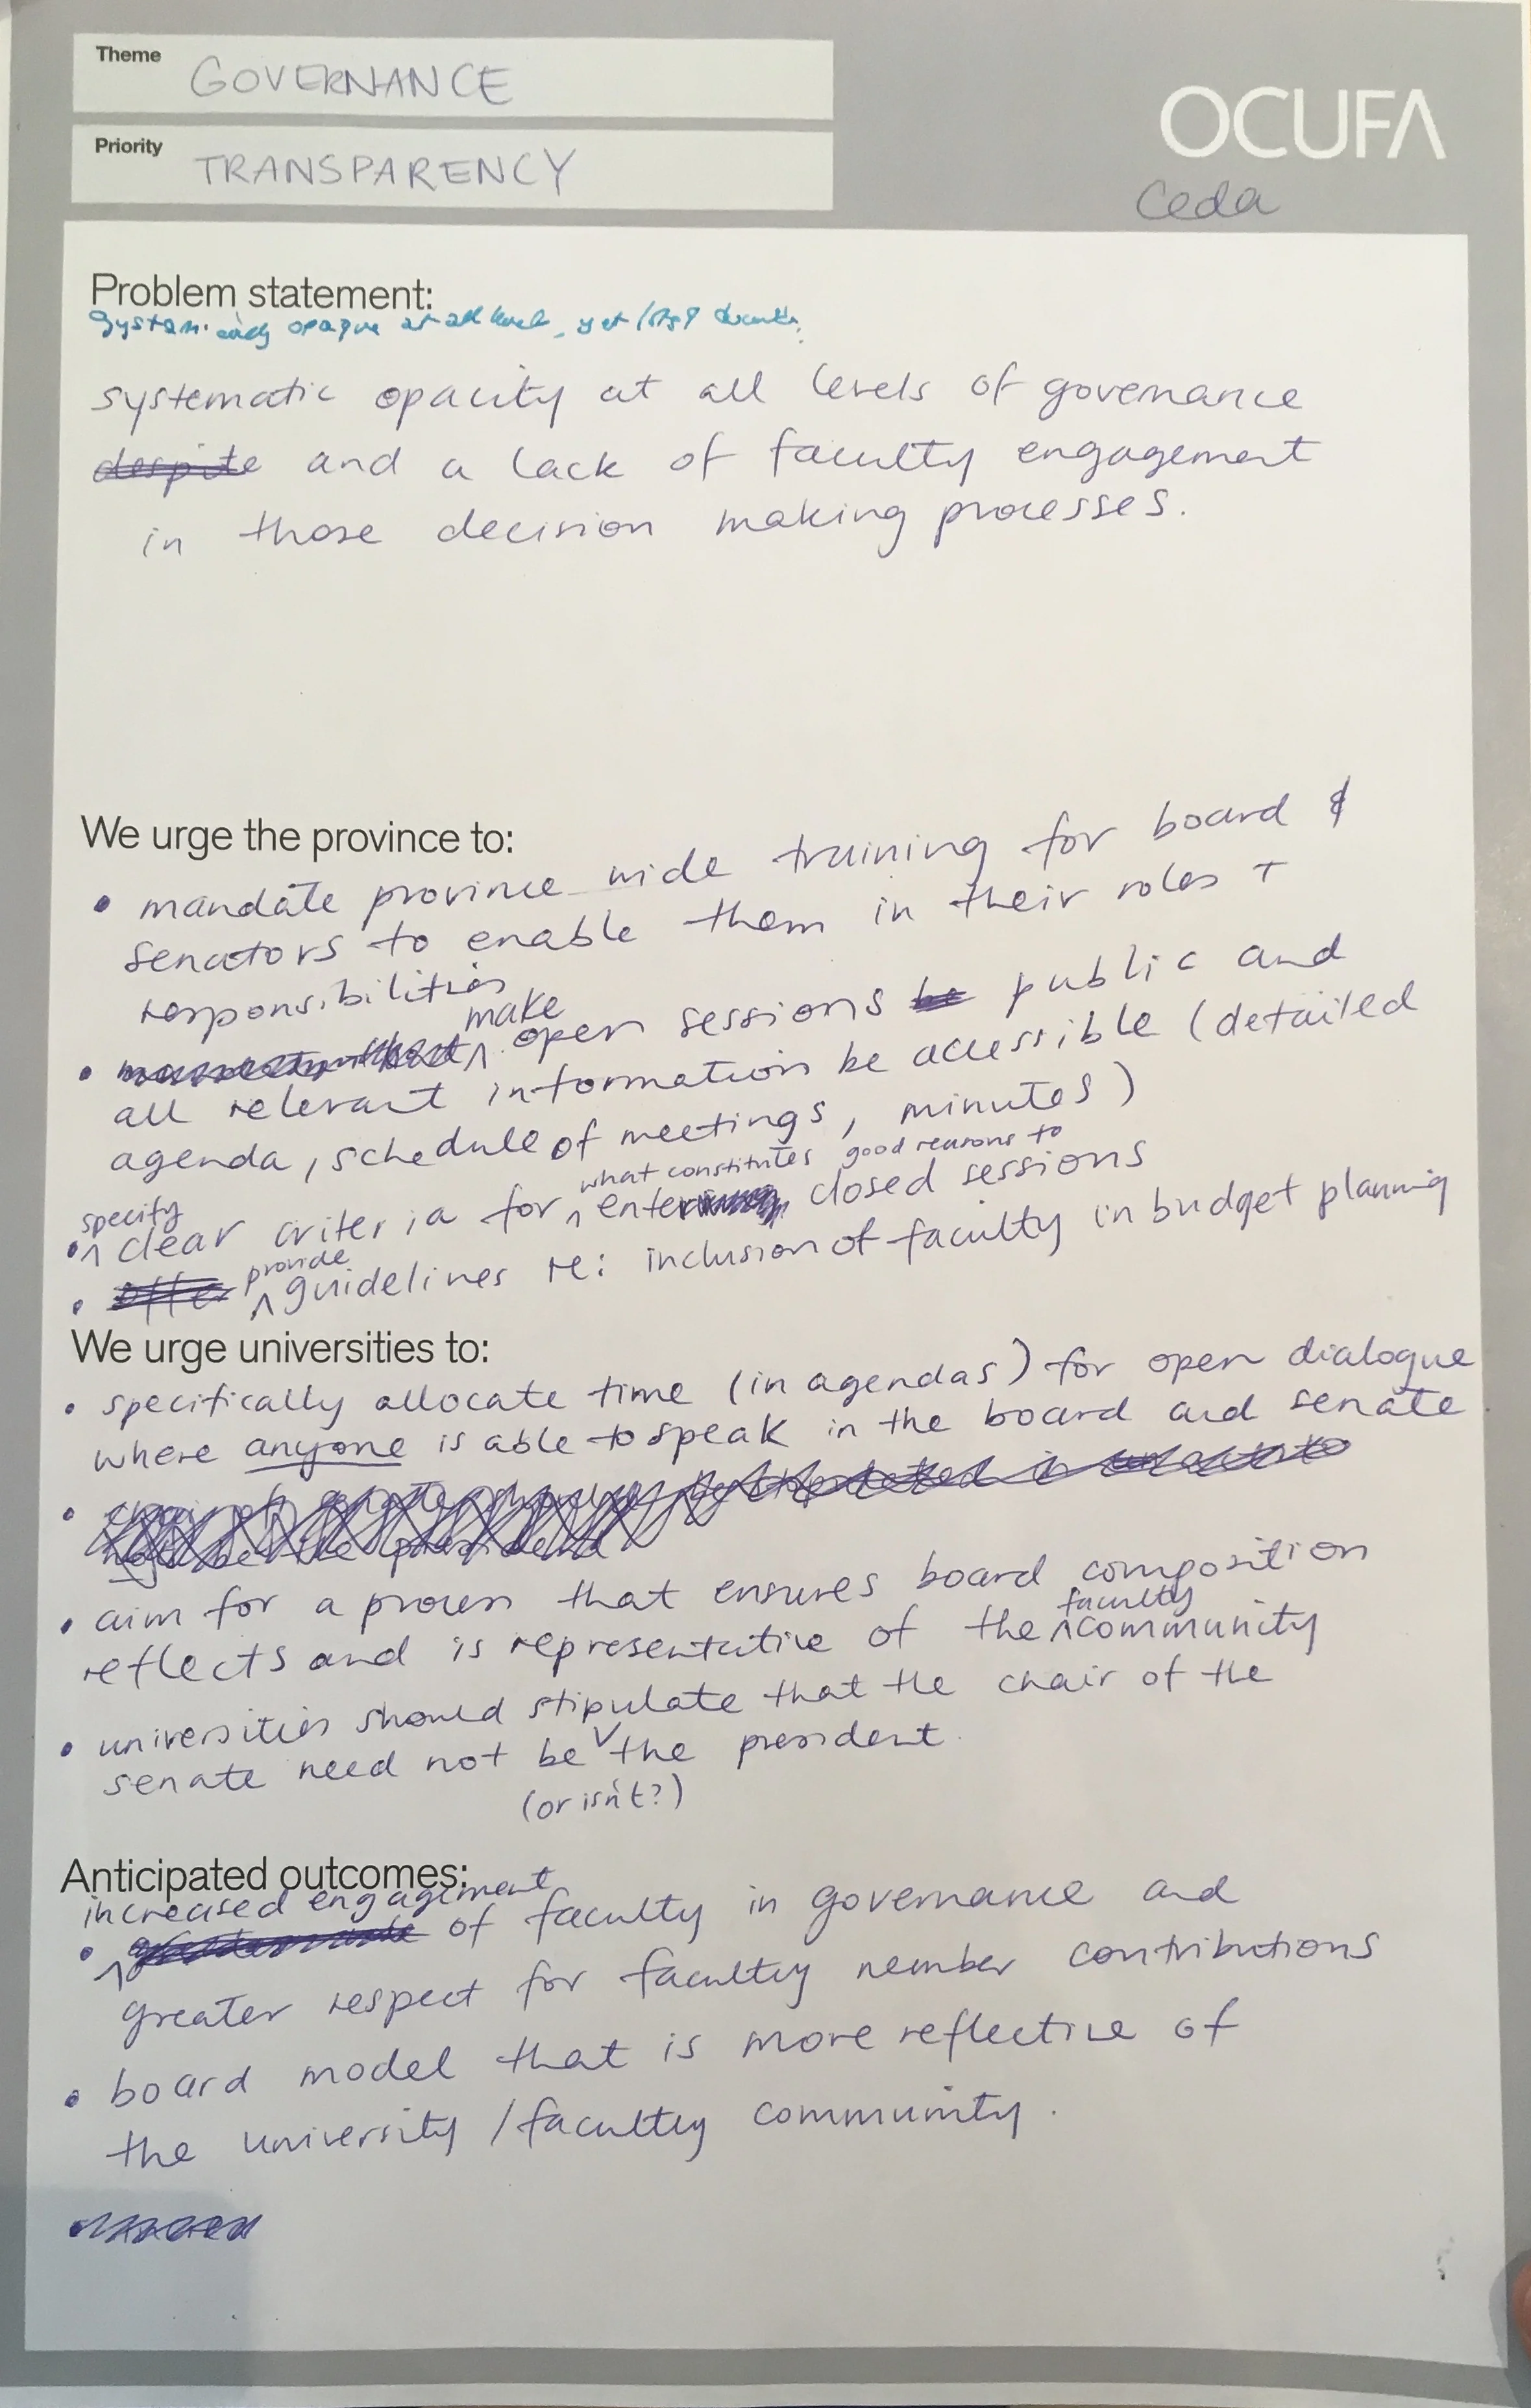 Theme GOVERNANCE
Priority TRANSPARENCY
OCUFA
Ceda
Problem statement:
opaque at all level, yet
systematic opacity at all levels of governance
despite and a lack of faculty engagement
in those decision making processes.
We urge the province to:
• mandate province wide training for board &
senators to enable them in their roles +
responsibilities
make
• ^ open sessions be public and
all relevant information be accessible (detailed
agenda, schedule of meetings, minutes)
what constitutes good reasons to
specify
• ^ clear criteria for ^ enter closed sessions
provide
• offer ^ guidelines re: inclusion of faculty in budget planning
We urge universities to:
• specifically allocate time (in agendas) for open dialogue
where anyone is able to speak in the board and senate
•
• aim for a process that ensures board composition
faculty
reflects and is representative of the ^ community
• universities should stipulate that the chair of the
senate need not be ∨ the president.
(or isn't?)
Anticipated outcomes:
increased engagement
• ^ of faculty in governance and
greater respect for faculty member contributions
• board model that is more reflective of
the university / faculty community.